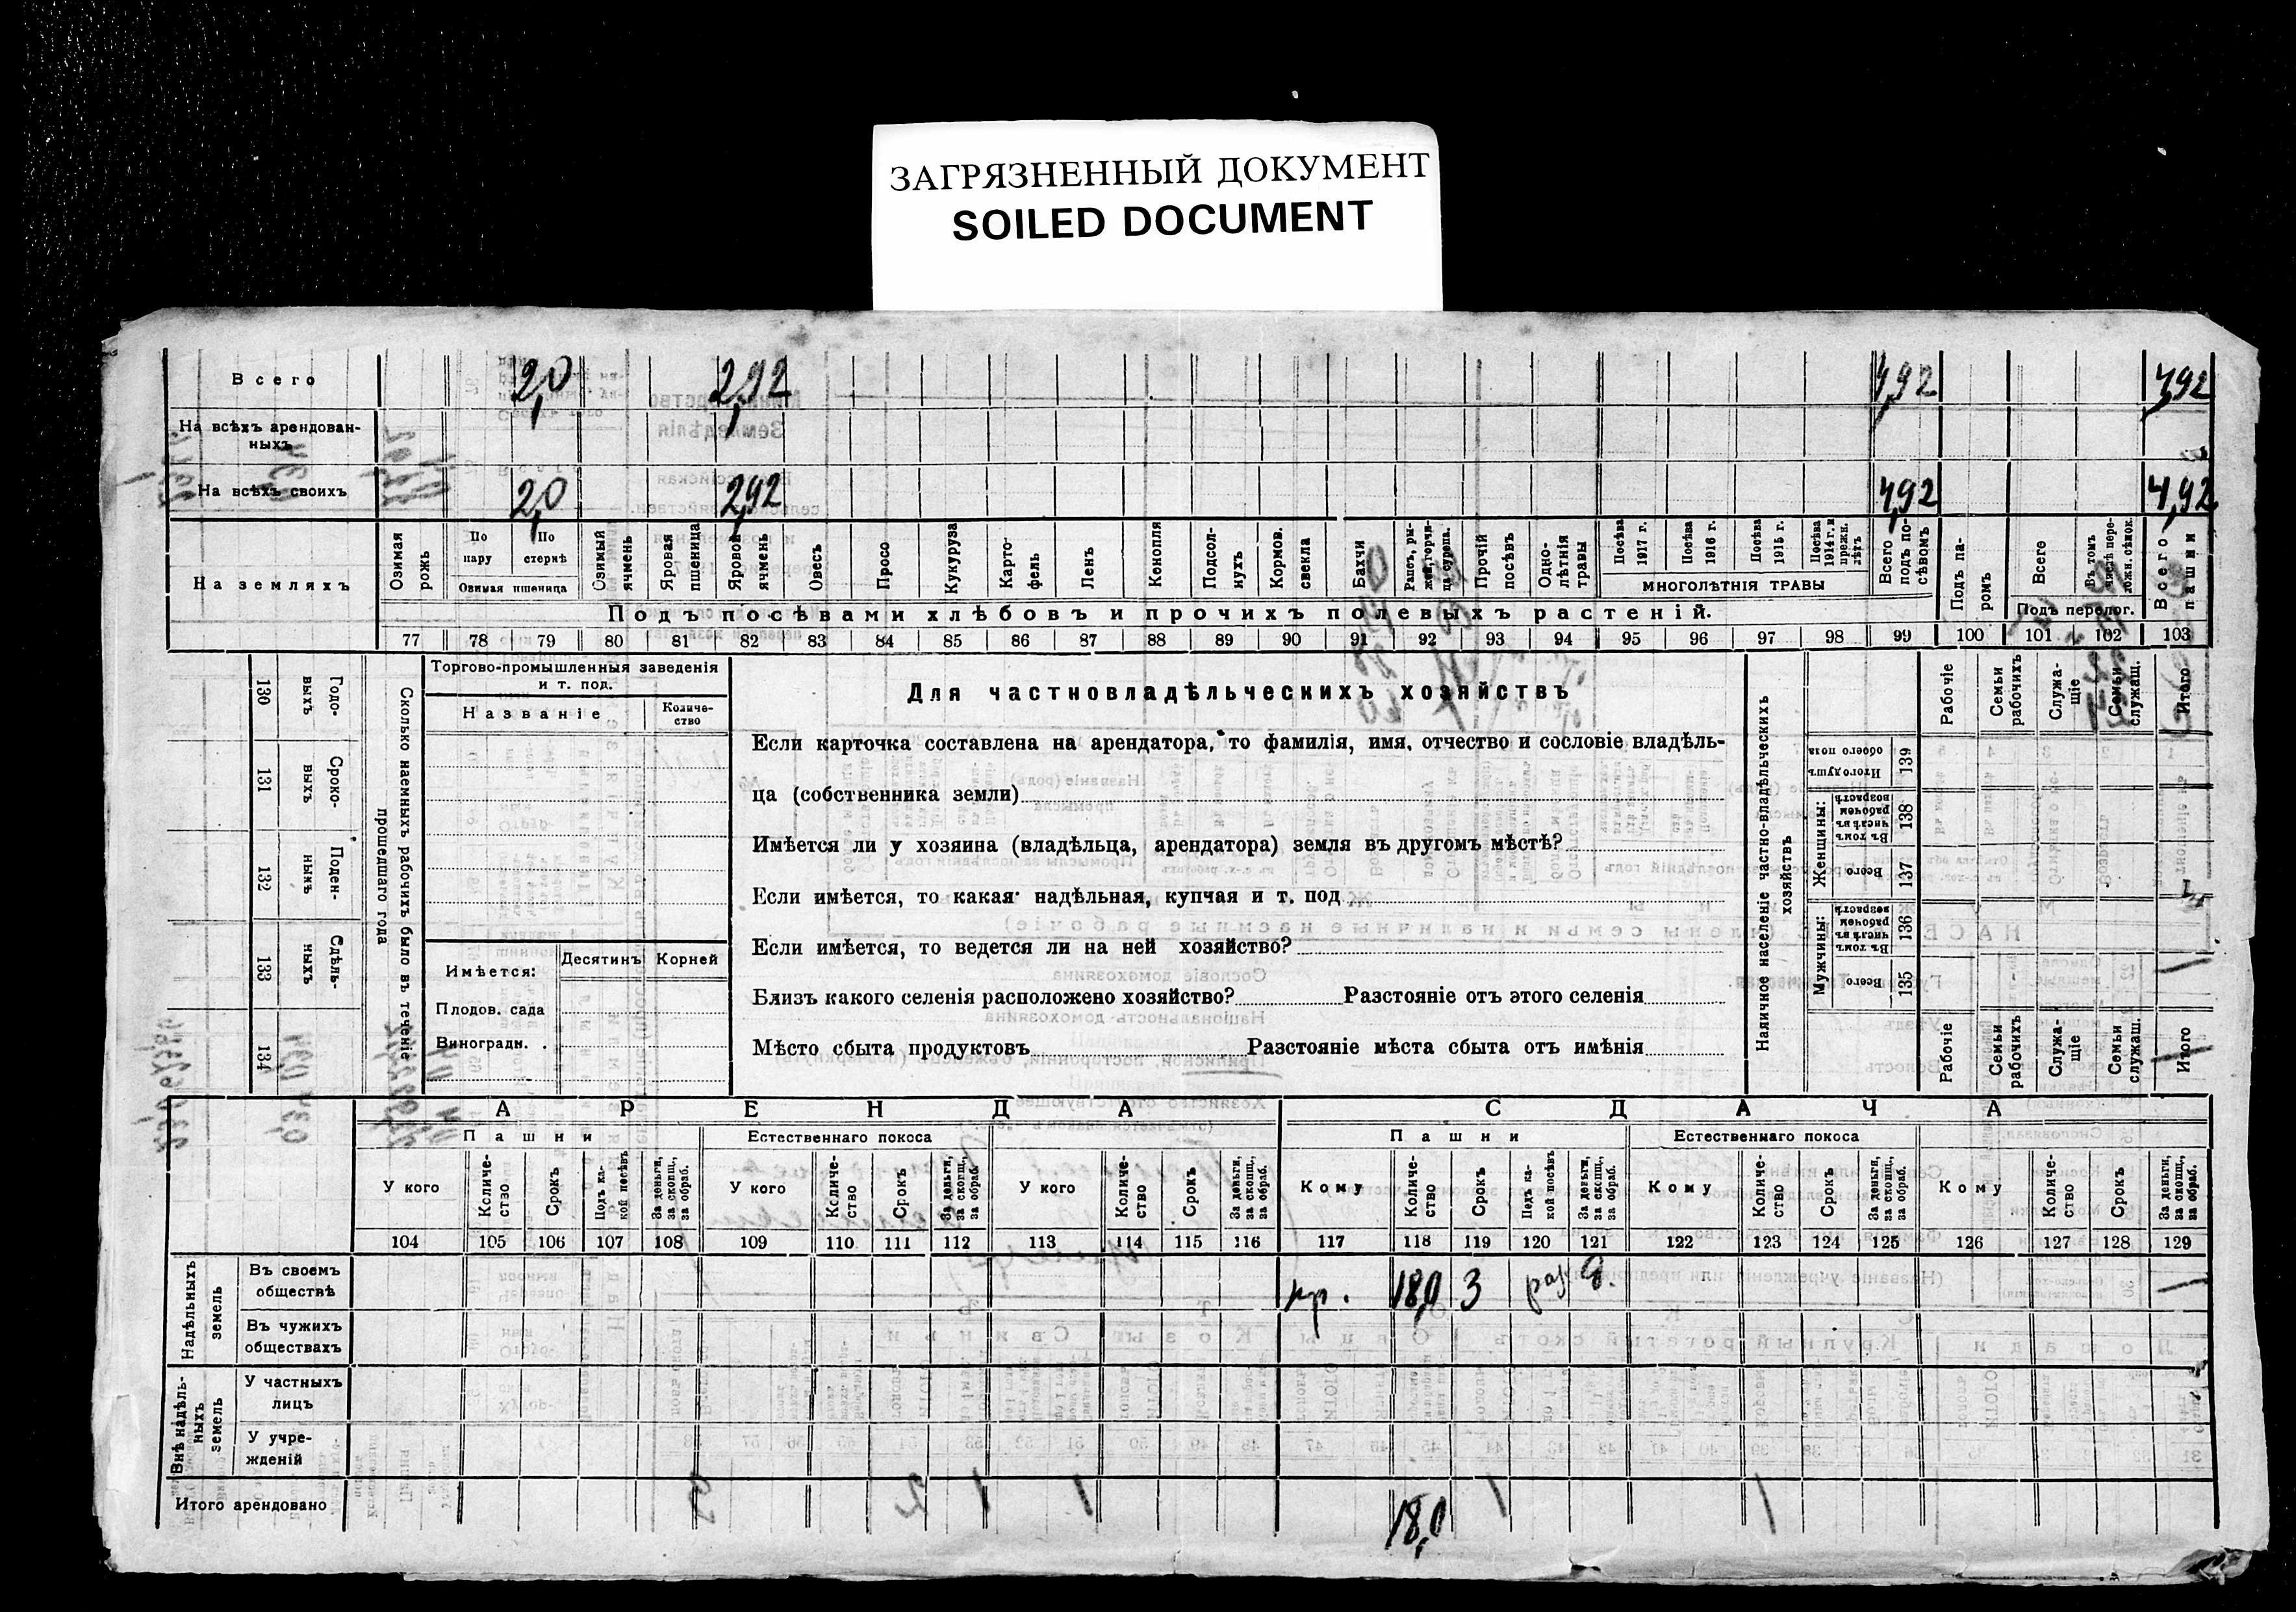 ЗАГРЯЗНЕННЫЙ ДОКУМЕНТ
SOILED DOCUMENT
Всего 2,0 2,92 4,92 4,92
На всѣхъ арендован-
ныхъ
На всѣхъ своихъ 2,0 2,92 4,92 4,92
На земляхъ
Озимая рожь
По пару
По стернѣ
Озимая пшеница
Озимый ячмень
Яровая пшеница
Яровой ячмень
Овесъ
Просо
Кукуруза
Карто-
фель
Ленъ
Конопля
Подсол-
нухъ
Кормов.
свекла
Бахчи
Рапсъ, ры-
жей, горчи-
ца сурепа.
Прочій посѣвъ
Одно-
лѣтнія травы
Посѣва 1917 г.
Посѣва 1916 г.
Посѣва 1915 г.
Посѣва 1914 г. и прежн. лѣтъ
МНОГОЛѢТНІЯ ТРАВЫ
Всего подъ по-
сѣвомъ
Подъ па-
ромъ
Всего
Въ томъ числѣ пере-
ложн. сѣнок.
Подъ перелог.
Всего пашни
Подъ посѣвами хлѣбовъ и прочихъ полевыхъ растеній.
77 78 79 80 81 82 83 84 85 86 87 88 89 90 91 92 93 94 95 96 97 98 99 100 101 102 103
Сколько наемныхъ рабочихъ было въ теченіе
прошедшаго года
Годо-
выхъ
130
Сроко-
выхъ
131
Поден-
ныхъ
132
Сдѣль-
ныхъ
133
134
Торгово-промышленныя заведенія
и т. под.
Названіе
Количе-
ство
Имѣется:
Десятинъ
Корней
Плодов. сада
Виноградн.
Для частновладѣльческихъ хозяйствъ
Если карточка составлена на арендатора, то фамилія, имя, отчество и сословіе владѣль-
ца (собственника земли)
Имѣется ли у хозяина (владѣльца, арендатора) земля въ другомъ мѣстѣ?
Если имѣется, то какая надѣльная, купчая и т. под
Если имѣется, то ведется ли на ней хозяйство?
Близъ какого селенія расположено хозяйство? Разстояніе отъ этого селенія
Мѣсто сбыта продуктовъ Разстояніе мѣста сбыта отъ имѣнія
Наличное населеніе частно-владѣльческихъ
хозяйствъ
Рабочіе
Семьи рабочихъ
Служа-
щіе
Семьи служащ.
Итого
Итого душъ обоего пола
139
Женщины:
Въ томъ числѣ въ рабочем возрастѣ
138
Всего
137
Мужчины:
Въ томъ числѣ въ рабочем возрастѣ
136
Всего
135
Рабочіе
Семьи рабочихъ
Служа-
щіе
Семьи служащ.
Итого
АРЕНДА
СДАЧА
Пашни
Естественнаго покоса
Пашни
Естественнаго покоса
У кого
Количе-
ство
Срокъ
Подъ ка-
кой посѣвъ
За деньги, за скопщ., за обраб.
У кого
Количе-
ство
Срокъ
За деньги, за скопщ., за обраб.
У кого
Количе-
ство
Срокъ
За деньги, за скопщ., за обраб.
Кому
Количе-
ство
Срокъ
Подъ ка-
кой посѣвъ
За деньги, за скопщ., за обраб.
Кому
Количе-
ство
Срокъ
За деньги, за скопщ., за обраб.
Кому
Количе-
ство
Срокъ
За деньги, за скопщ., за обраб.
104 105 106 107 108 109 110 111 112 113 114 115 116 117 118 119 120 121 122 123 124 125 126 127 128 129
Надѣльныхъ земель
Въ своемъ обществѣ
18,0 3
Въ чужихъ
обществахъ
Внѣ надѣль-
ныхъ земель
У частныхъ
лицъ
У учре-
жденій
Итого арендовано 18,0